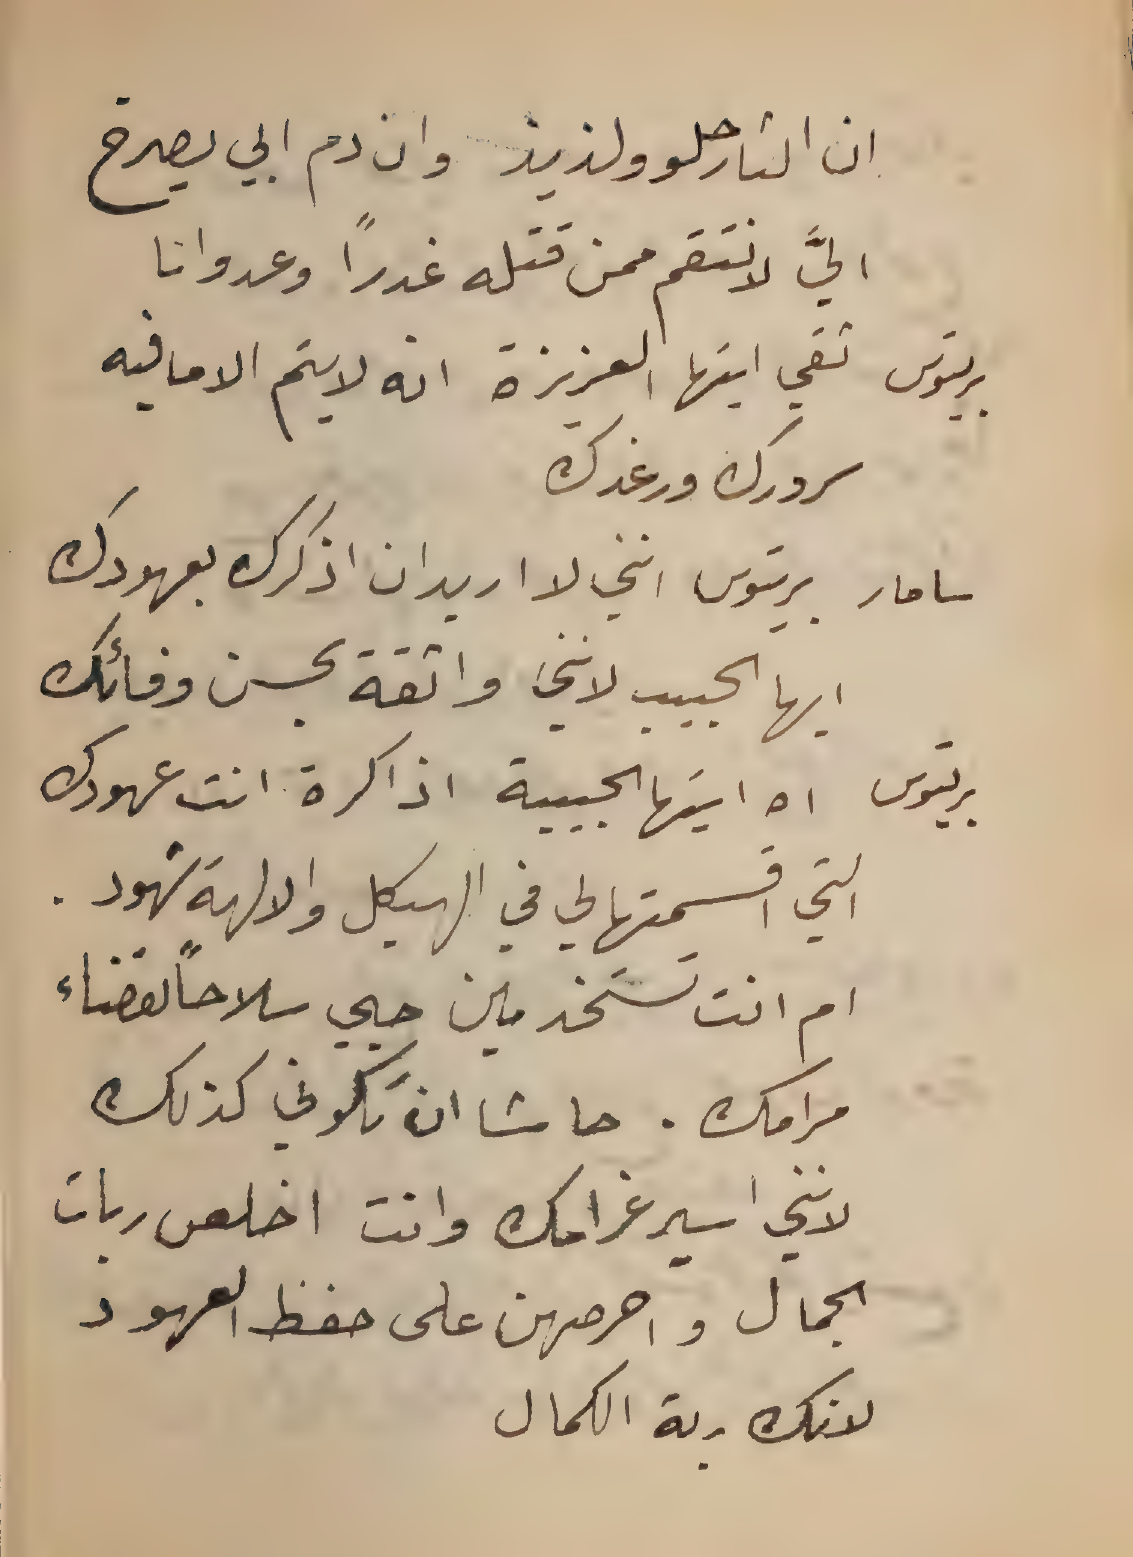 ان الثار حلو ولذيذ وان دم ابي يصرخ
اليَّ لانتقم ممن قتله غدرًا وعدوانا
بريتوس ثقي ايتها العزيزة انه لا يتم الا ما فيه
سرورك ورغدك
سامار بريتوس انني لا اريد ان اذكرك بعهودك
ايها الحبيب لانني واثقة بحسن وفائك
بريتوس اه ايتها الحبيبة اذاكرة انت عهودك
التي اقسمتها لي في الهيكل والالهة شهود .
ام انت تستخدمين حبي سلاحًا لقضاء
مرامك . حاشا ان تكوني كذلك
لانني اسير غرامك وانت اخلص ربات
الجمال واحرصهن على حفظ العهود
لانك ربة الكمال